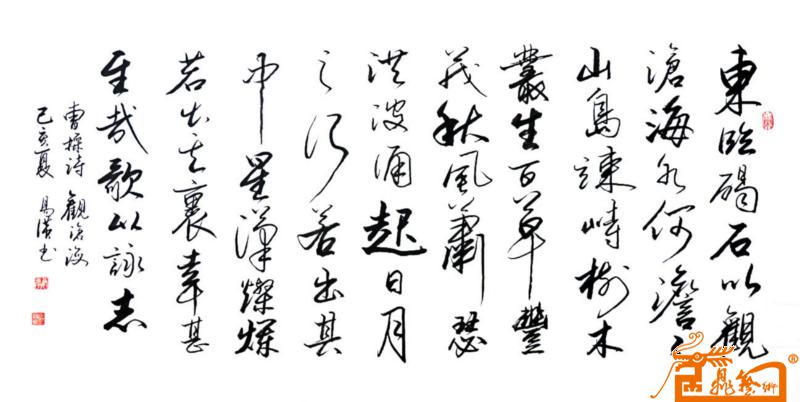 東臨碣石以觀
滄海水何澹々
山島竦峙樹木
叢生百草豐
茂秋風蕭瑟
洪波涌起日月
之行若出其
中星漢燦爛
若出其裏幸甚
至哉歌以詠志
曹操詩 觀滄海
己亥夏 书
藝術®